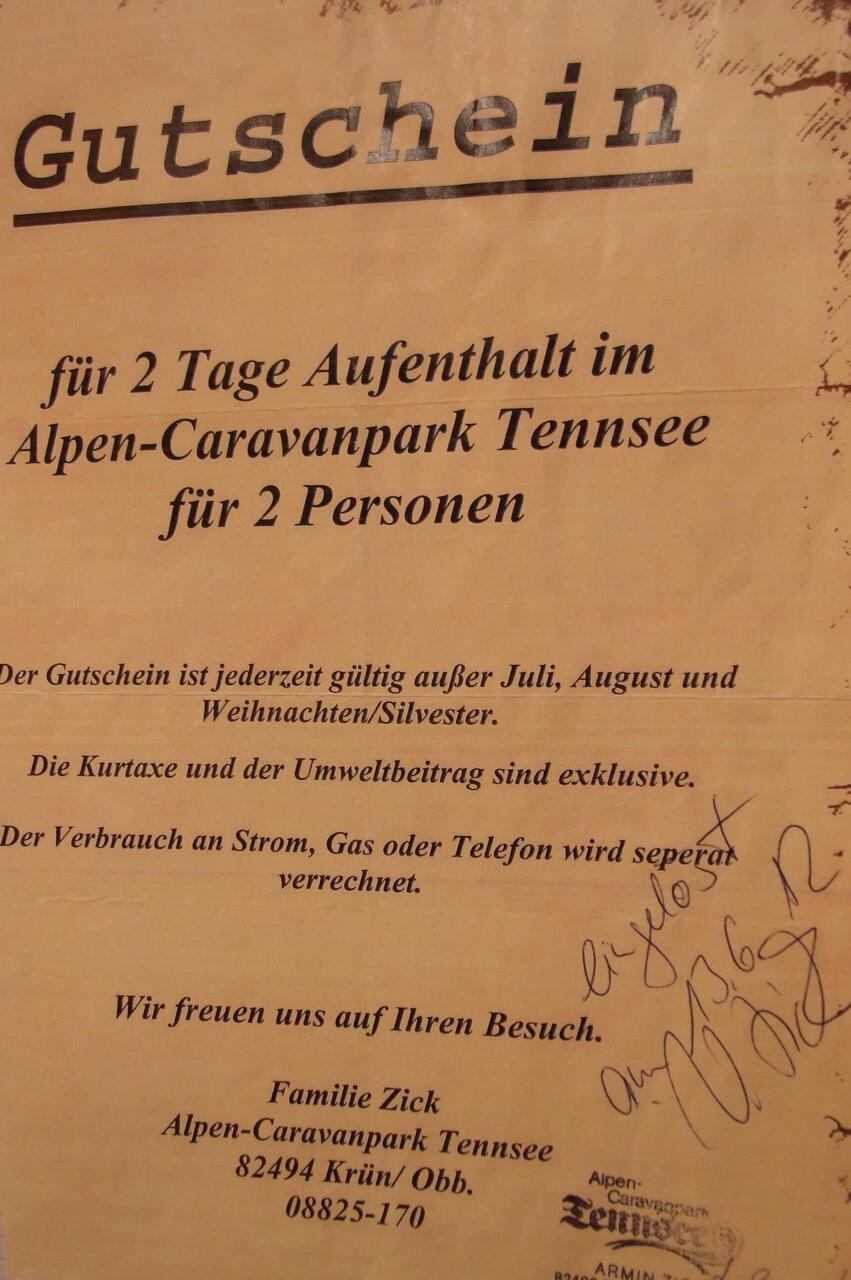 Gutschein
für 2 Tage Aufenthalt im
Alpen-Caravanpark Tennsee
für 2 Personen
Der Gutschein ist jederzeit gültig außer Juli, August und
Weihnachten/Silvester.
Die Kurtaxe und der Umweltbeitrag sind exklusive.
Der Verbrauch an Strom, Gas oder Telefon wird seperat
verrechnet.
eingelöst
am 13.6.12
Wir freuen uns auf Ihren Besuch.
Familie Zick
Alpen-Caravanpark Tennsee
82494 Krün/ Obb.
08825-170
Alpen-
Caravanpark
Tennsee
ARMIN